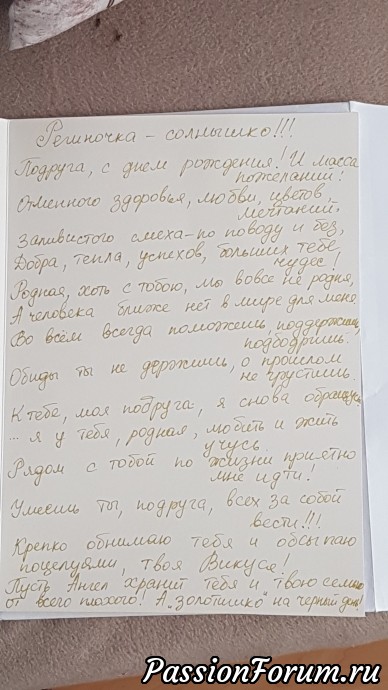 Региночка - солнышко!!!
Подруга, с днем рождения! И масса
пожеланий!
Отменного здоровья, любви, цветов,
мечтаний.
Заливистого смеха - по поводу и без,
Добра, тепла, успехов, больших тебе
чудес!
Родная, хоть с тобою, мы вовсе не родня,
А человека ближе нет в мире для меня.
Во всём всегда поможешь, поддержишь,
подбодришь.
Обиды ты не держишь, о прошлом
не грустишь.
К тебе, моя подруга, я снова обращусь
... я у тебя, родная, любить и жить
учусь.
Рядом с тобой по жизни приятно
мне идти!
Умеешь ты, подруга, всех за собой
вести!!!
Крепко обнимаю тебя и обсыпаю
поцелуями, твоя Викуся!
Пусть Ангел хранит тебя и твою семью
от всего плохого! А "золотишко" на черный день!
PassionForum.ru